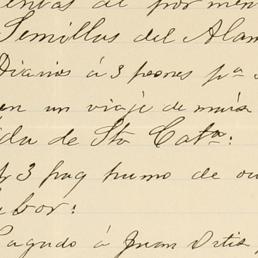 de por men
Semillas del Alam
Diarios á 3 peones pa
en un viaje de maiz
da de Sta Cata:
3 paq humo de
bor:
Pagado á Juan Ortis